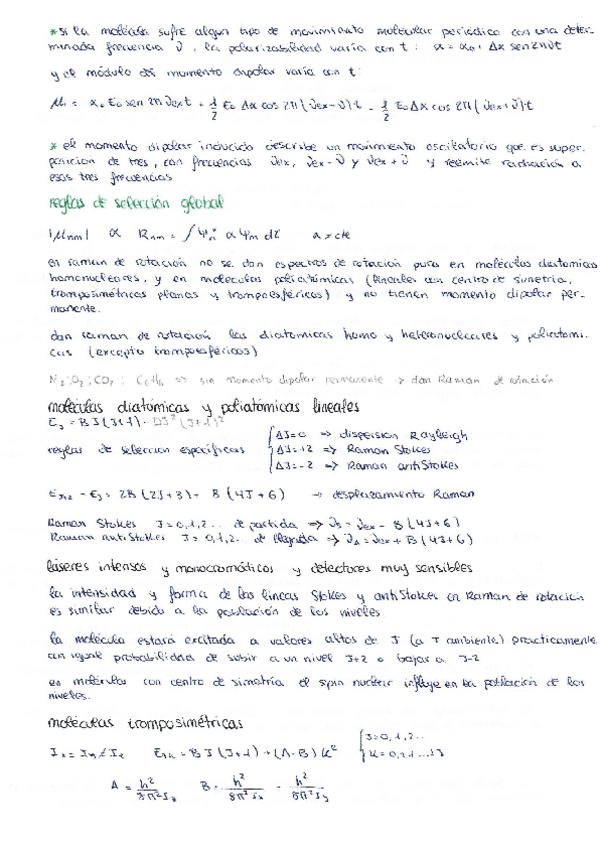 * si la molécula sufre algun tipo de movimiento molecular periódico con una deter-
minada frecuencia ν, la polarizabilidad varia con t: α = α₀ + Δα sen 2πνt
y el módulo del momento dipolar varia con t:
μᵢ = α₀ E₀ sen 2π νex t + 1/2 E₀ Δα cos 2π (νex - ν) t - 1/2 E₀ Δα cos 2π (νex + ν) t
* el momento dipolar inducido describe un movimiento oscilatorio que es super-
posicion de tres, con frecuencias νex, νex - ν y νex + ν y reemite radiación a
esas tres frecuencias
reglas de selección global
|μnm| α Rnm = ∫ψn* α ψm dτ α ≠ cte
en raman de rotación no se dan espectros de rotación pura en moléculas diatomicas
homonucleares, y en moléculas poliatómicas (lineales con centro de simetria,
tromposimétricas planas y trompoesféricas) y no tienen momento dipolar per-
manente.
dan raman de rotación las diatomicas homo y heteronucleares y poliatomi-
cas (excepto trompoesféricas)
N₂; O₂; CO₂; C₆H₆ => sin momento dipolar permanente → dan Raman de rotación
moléculas diatómicas y poliatómicas lineales
EJ = BJ (J+1) - DJ² (J+1)²
reglas de seleccion especificas
ΔJ = 0 => dispersion Rayleigh
ΔJ = +2 => Raman Stokes
ΔJ = -2 => Raman antiStokes
EJ+2 - EJ = 2B (2J+3) = B (4J+6) → desplazamiento Raman
Raman Stokes J = 0,1,2... de partida => νs = νex - B (4J+6)
Raman antiStokes J = 0,1,2... de llegada => νA = νex + B (4J+6)
láseres intensos y monocromáticos y detectores muy sensibles
la intensidad y forma de las lineas Stokes y antiStokes en Raman de rotación
es similar debido a la población de los niveles
la molécula estará excitada a valores altos de J (a T ambiente) practicamente
con igual probabilidad de subir a un nivel J+2 o bajar a J-2
en moléculas con centro de simetria el spin nuclear influye en la población de los
niveles.
moléculas trompsimétricas
Ix = Iy ≠ Iz EJK = BJ (J+1) + (A-B) K²
J = 0,1,2..
K = 0,±1...±J
A = h²/8π²Iz B = h²/8π²Ix = h²/8π²Iy